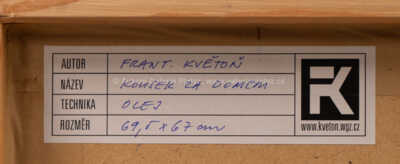 AUTOR FRANT. KVĚTOŇ
NÁZEV KOUSEK ZA DOMEM
TECHNIKA OLEJ
ROZMĚR 69,5 x 67 cm
www.kveton.wgz.cz